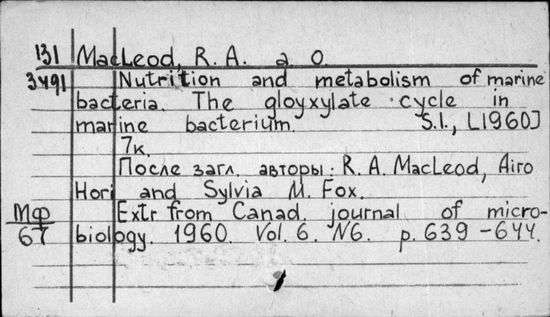 131 MacLeod, R. A. a. o.
3491 Nutrition and metabolism of marine
bacteria. The gloyxylate cycle in
marine bacterium. S.l., [1960]
7к.
После загл. авторы: R. A. MacLeod, Airo
Hori and Sylvia M. Fox.
Мф Extr from Canad. journal of micro-
67 biology. 1960. Vol. 6. N6. p. 639-644.